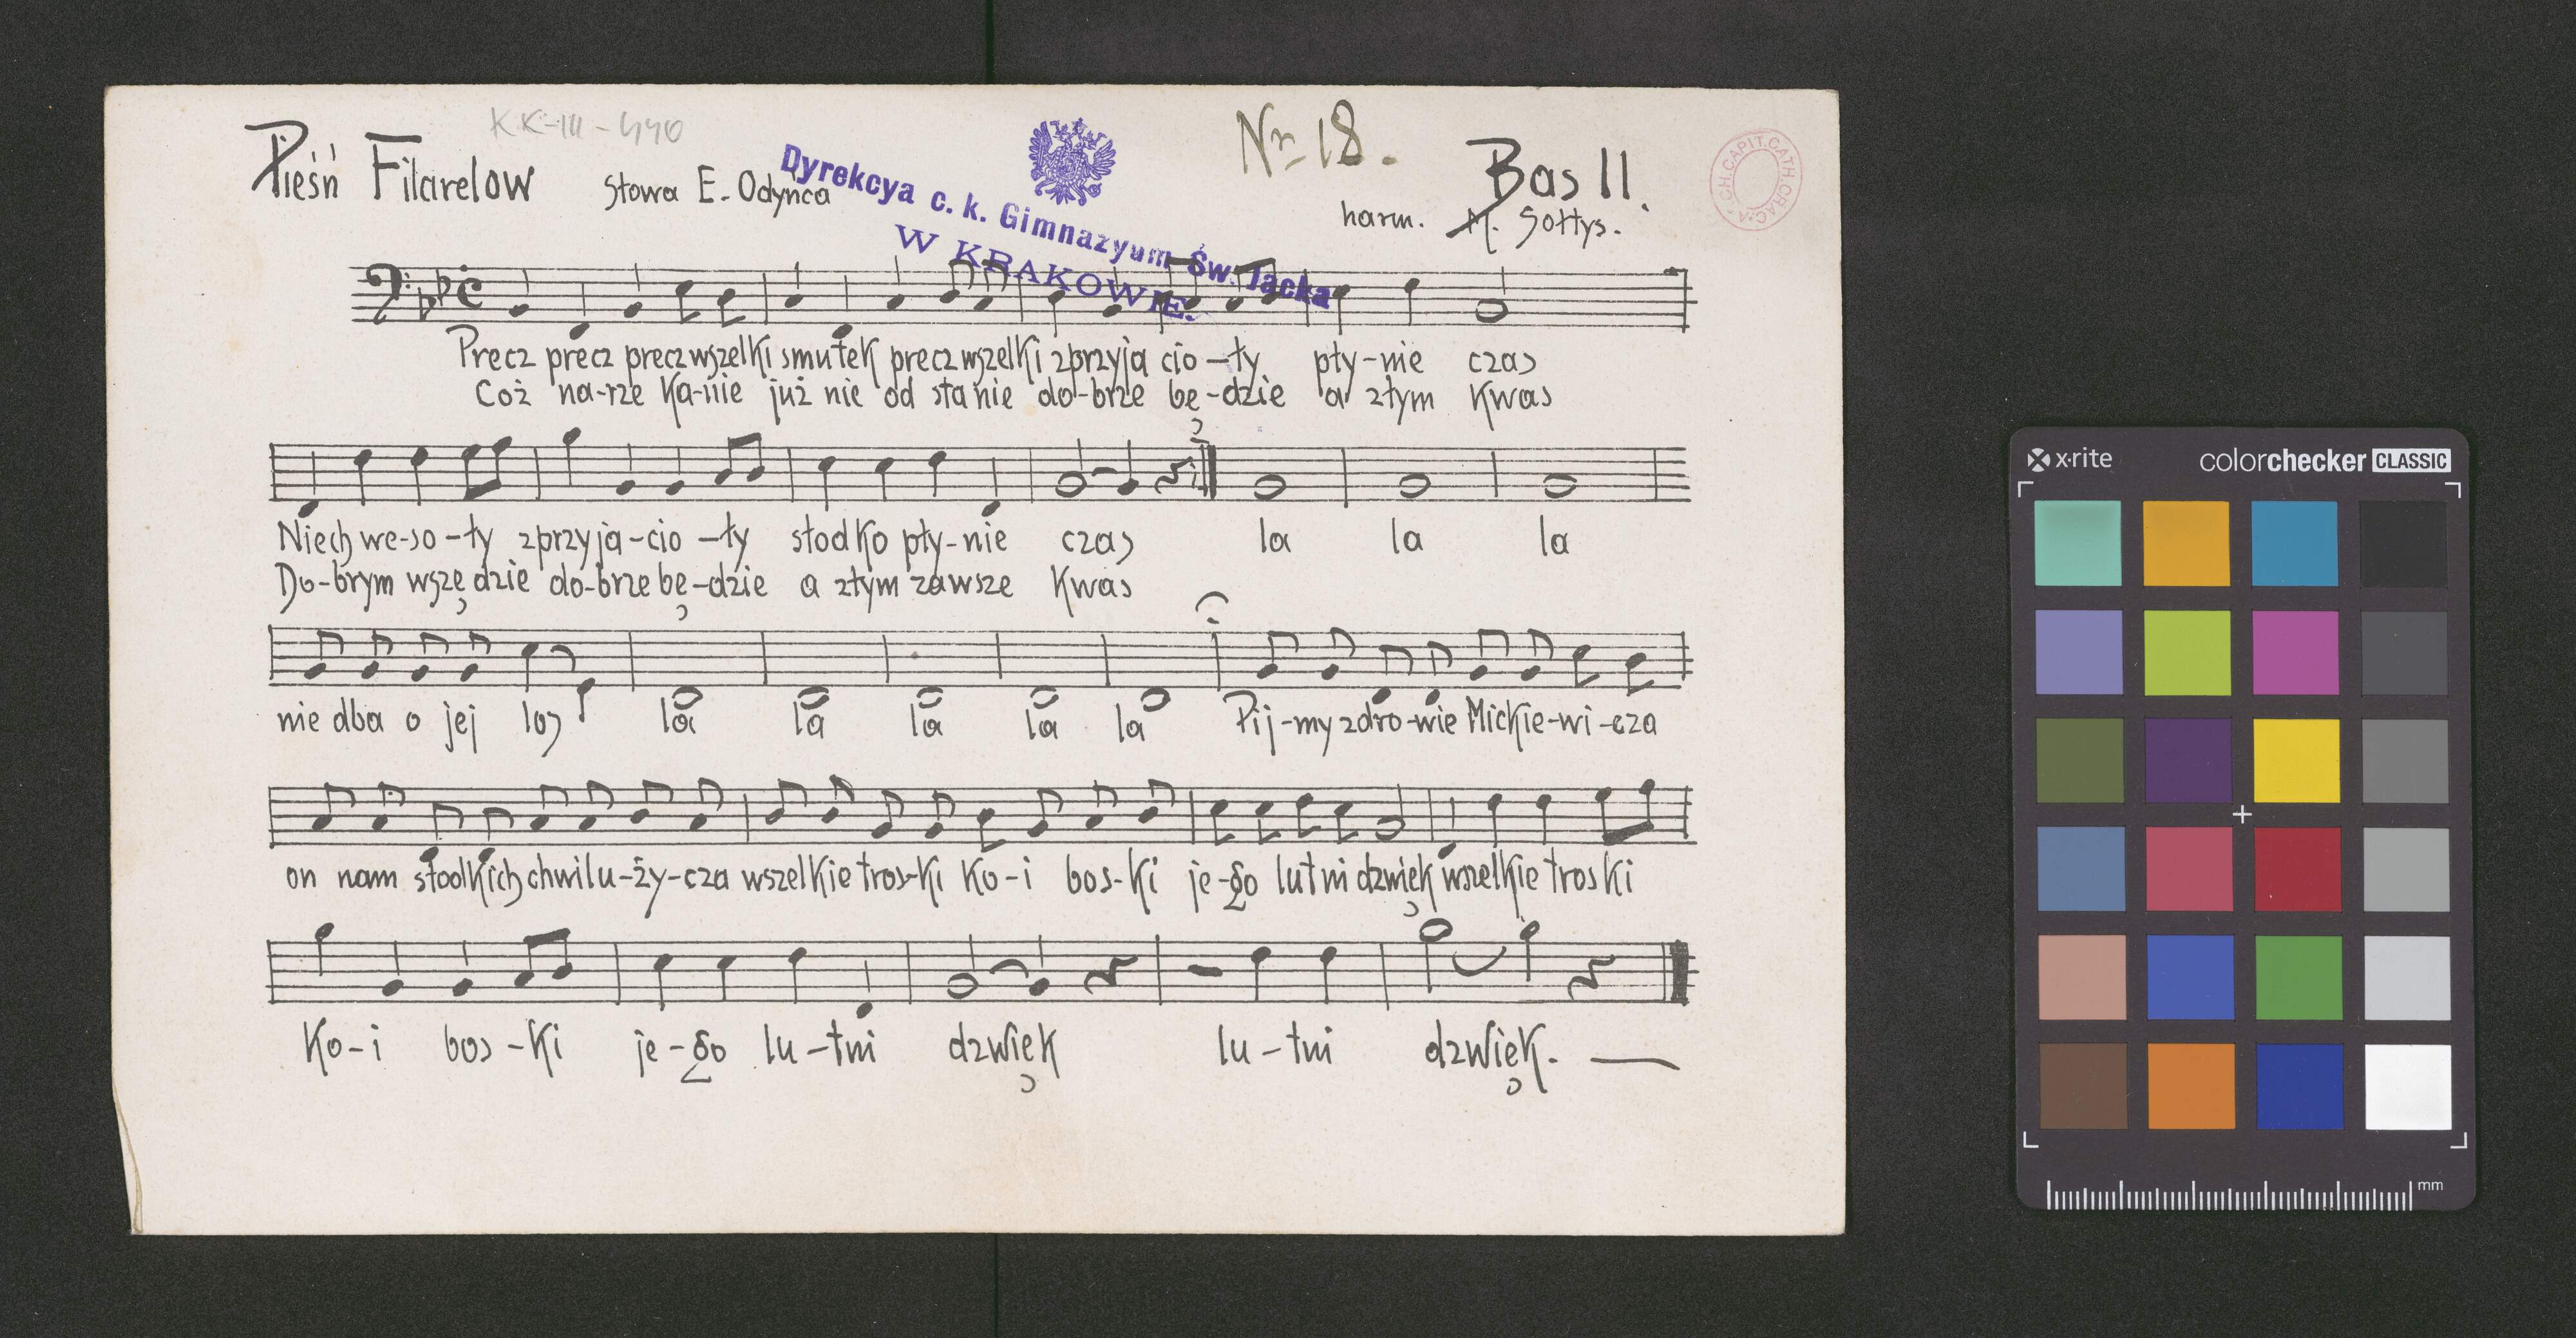 KK-III-440
Pieśń Filarelow
Słowa E. Odyńca
Dyrekcya c. k. Gimnazyum Św. Jacka
W KRAKOWIE.
Nr. 18.
Bas II.
harm. M. Sołtys.
Precz precz precz wszelki smutek precz wszelki z przyja cio-ły pły-nie czas
Coż na-rze ka-nie już nie od stanie do-brze bę-dzie a złym kwas
Niech we-so-ły z przyja-cio-ły słodko pły-nie czas la la la
Do-brym wszę dzie do-brze bę-dzie a złym zawsze kwas
nie dba o jej los la la la la la Pij-my zdro-wie Mickie-wi-cza
on nam słodkich chwil u-ży-cza wszelkie tros-ki ko-i bos-ki je-go lutni dzwięk wszelkie troski
ko-i bos-ki je-go lu-tni dzwięk lu-tni dzwięk.
x-rite colorchecker CLASSIC
mm